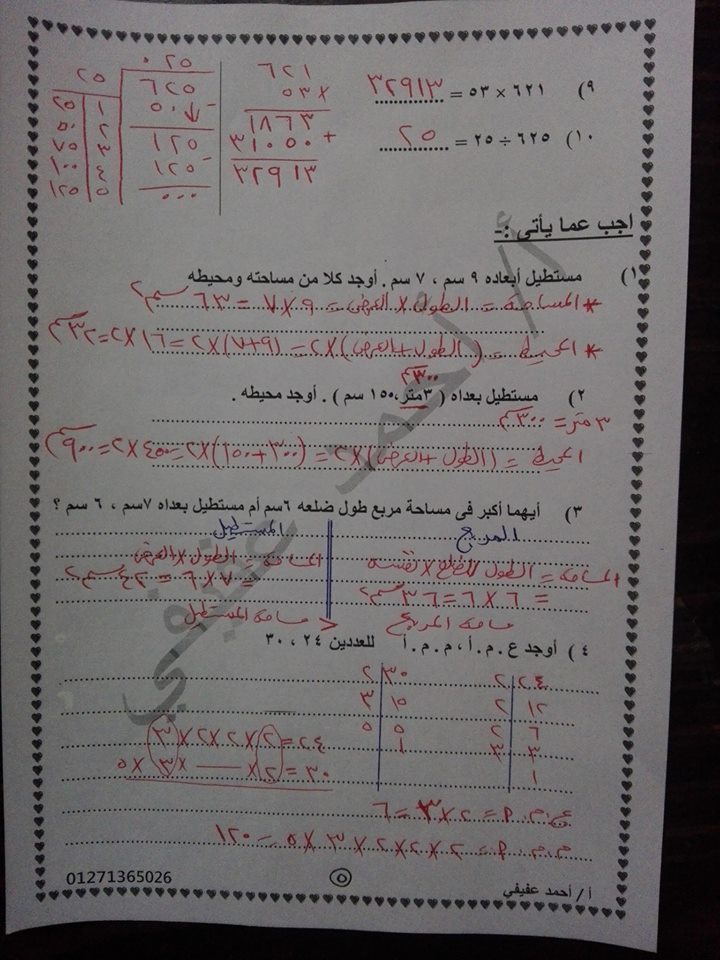 ٩) ٦٢١ × ٥٣ = ٣٢٩١٣
١٠) ٦٢٥ ÷ ٢٥ = ٢٥
٦٢١
٥٣ ×
١٨٦٣
٣١٠٥٠ +
٣٢٩١٣
٠٢٥
٦٢٥
٥٠ -
١٢٥
١٢٥ -
٠٠٠
٢٥
١ ٢٥
٢ ٥٠
٣ ٧٥
٤ ١٠٠
٥ ١٢٥
اجب عما يأتى :-
١) مستطيل أبعاده ٩ سم ، ٧ سم . أوجد كلا من مساحته ومحيطه
* المساحة = الطول × العرض = ٩ × ٧ = ٦٣ سم٢
* المحيط = (الطول + العرض) × ٢ = (٩+٧) × ٢ = ١٦ × ٢ = ٣٢ سم
٣٠٠ سم
٢) مستطيل بعداه ( ٣متر ، ١٥٠ سم ) . أوجد محيطه .
٣ متر = ٣٠٠ سم
المحيط = (الطول + العرض) × ٢ = (٣٠٠ + ١٥٠) × ٢ = ٤٥٠ × ٢ = ٩٠٠ سم
٣) أيهما أكبر فى مساحة مربع طول ضلعه ٦سم أم مستطيل بعداه ٧سم ، ٦ سم ؟
المربع المستطيل
المساحة = الطول الضلع × نفسه
= ٦ × ٦ = ٣٦ سم٢
المساحة = الطول × العرض
= ٧ × ٦ = ٤٢ سم٢
مساحة المربع < مساحة المستطيل
٤) أوجد ع . م . أ ، م . م . أ للعددين ٢٤ ، ٣٠
٢٤ ٢ ٣٠ ٢
١٢ ٢ ١٥ ٣
٦ ٢ ٥ ٥
٣ ٣ ١
١
٢٤ = ٢ × ٢ × ٢ × ٣
٣٠ = ٢ × ــــ × ٣ × ٥
ع . م . أ = ٢ × ٣ = ٦
م . م . أ = ٢ × ٢ × ٢ × ٣ × ٥ = ١٢٠
أ/ أحمد عفيفي
٥
01271365026
أ/ أحمد عفيفي